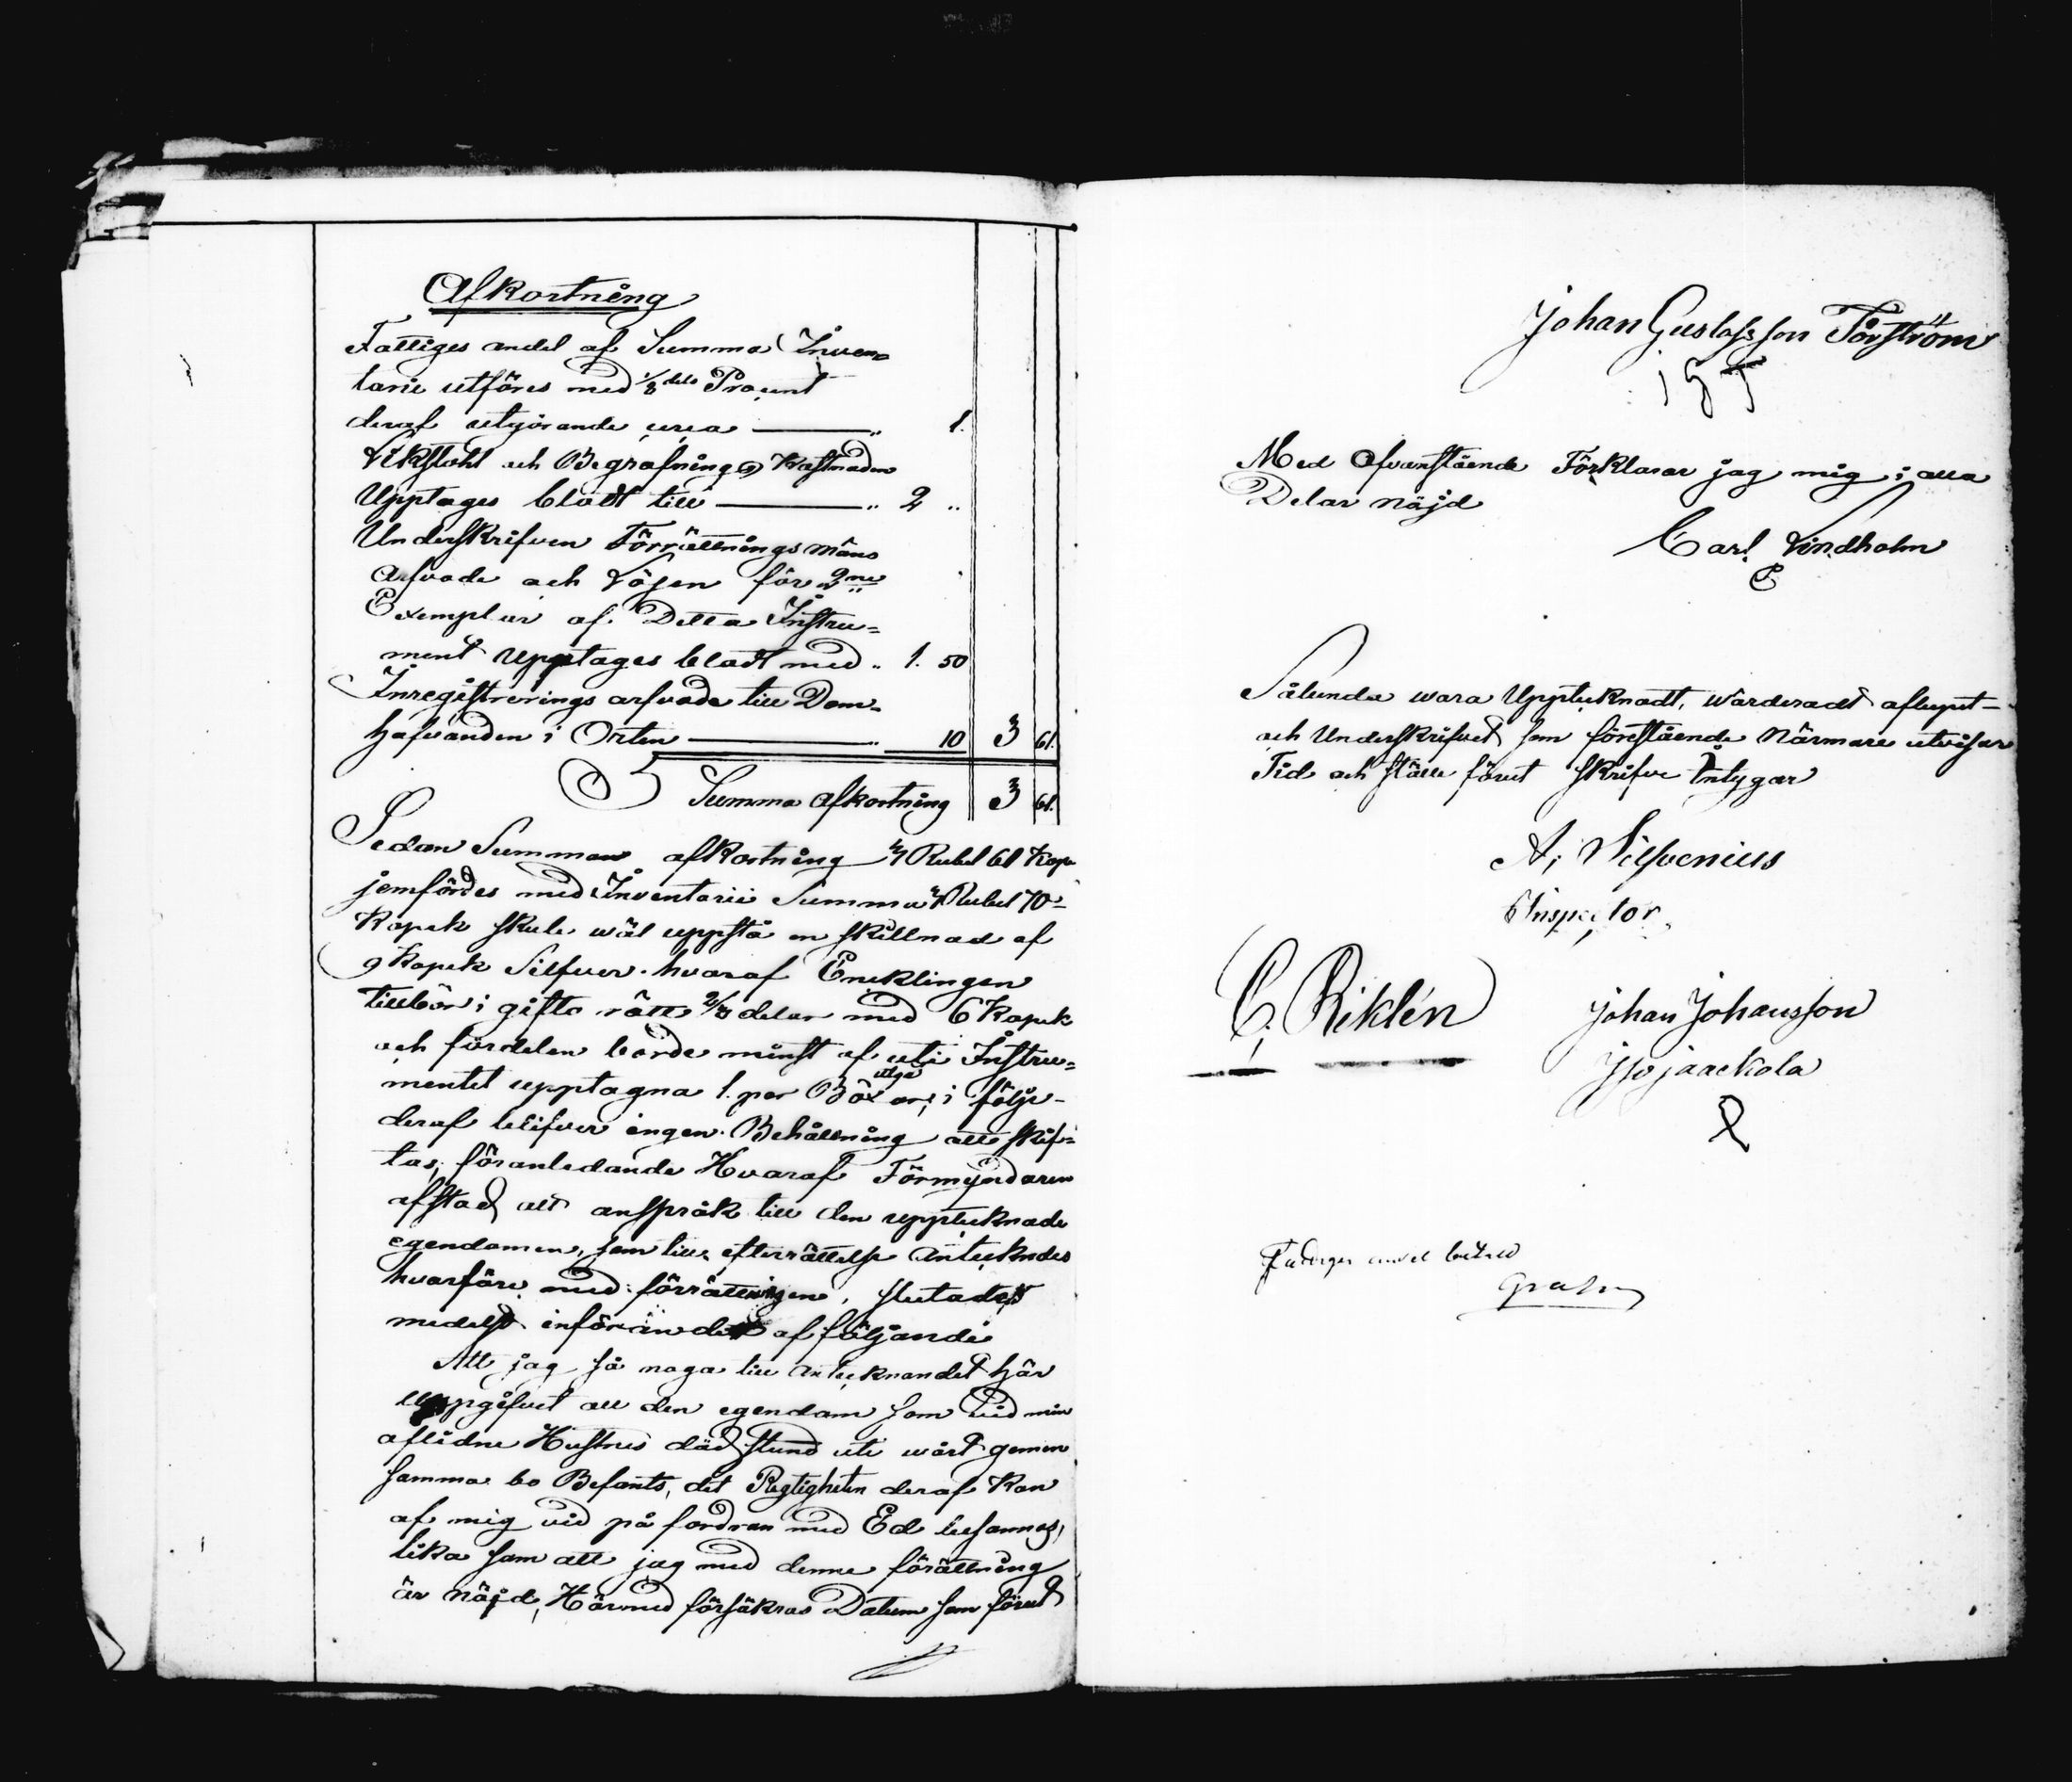 Afkortning
Fattiges andel af Summa Inven=
tarie utföres med 1/8 dels Procent
deraf utgörande 1.
Likstohl och Begrafnings Kostnaden
Upptages blott till 2 "
Underskrifven Förrättnings mans
Arfvode och Lösen för 2ne
Exemplar af Detta Instru=
ment Upptages blott med " 1. 50
Inregistrerings arfvode till Dom=
hafvanden i Orten 10 3 61.
Summa Afkortning 3 61.
Sedan Summan afkortning 3 Rubel 61 Kop
jemfördes med Inventarii Summa 3 Rubel 70
Kopek skule wäl uppstå en skillnad af
9 Kopek Silfver hvaraf Encklingen
tillkör i gifto rätt 2/3 delar med 6 Kopek
och fördelen borde minst af uti Instru=
mentet upptagna 1. par Böxor utgå; i följe
deraf blifver ingen Behållning att skif=
tas, föranledande Hvaraf Förmyndaren
afstod allt anspråk till den upptecknade
egendomen, som till efterrättelse antecknades
hvarföre med förrättningen slutades
medelst införandet af följande
Att jag så noga till antecknandet här
uppgifvet all den egendom som vid min
aflidne Hustrus död stund uti wårt gemen
samma bo Befants, det Rigtigheten deraf kan
af mig vid på fordran med Ed besannas,
lika som att jag med denne förättning
är nöjd, Härmed försäkras Datum som förut
Johan Gustafsson Förström
Med Ofvanstående Förklarar jag mig i alla
Delar nöjd
Carl Lindholm
Sålunda wara Upptecknadt, wärderadt aflupit
och Underskrifvet som förestående Närmare utvisar
Tid och ställe förut skrifve Intygar
A. Silfvenius
Inspector
C. Riklén
Johan Johansson
Iso jaackola
Fattiges andel betald